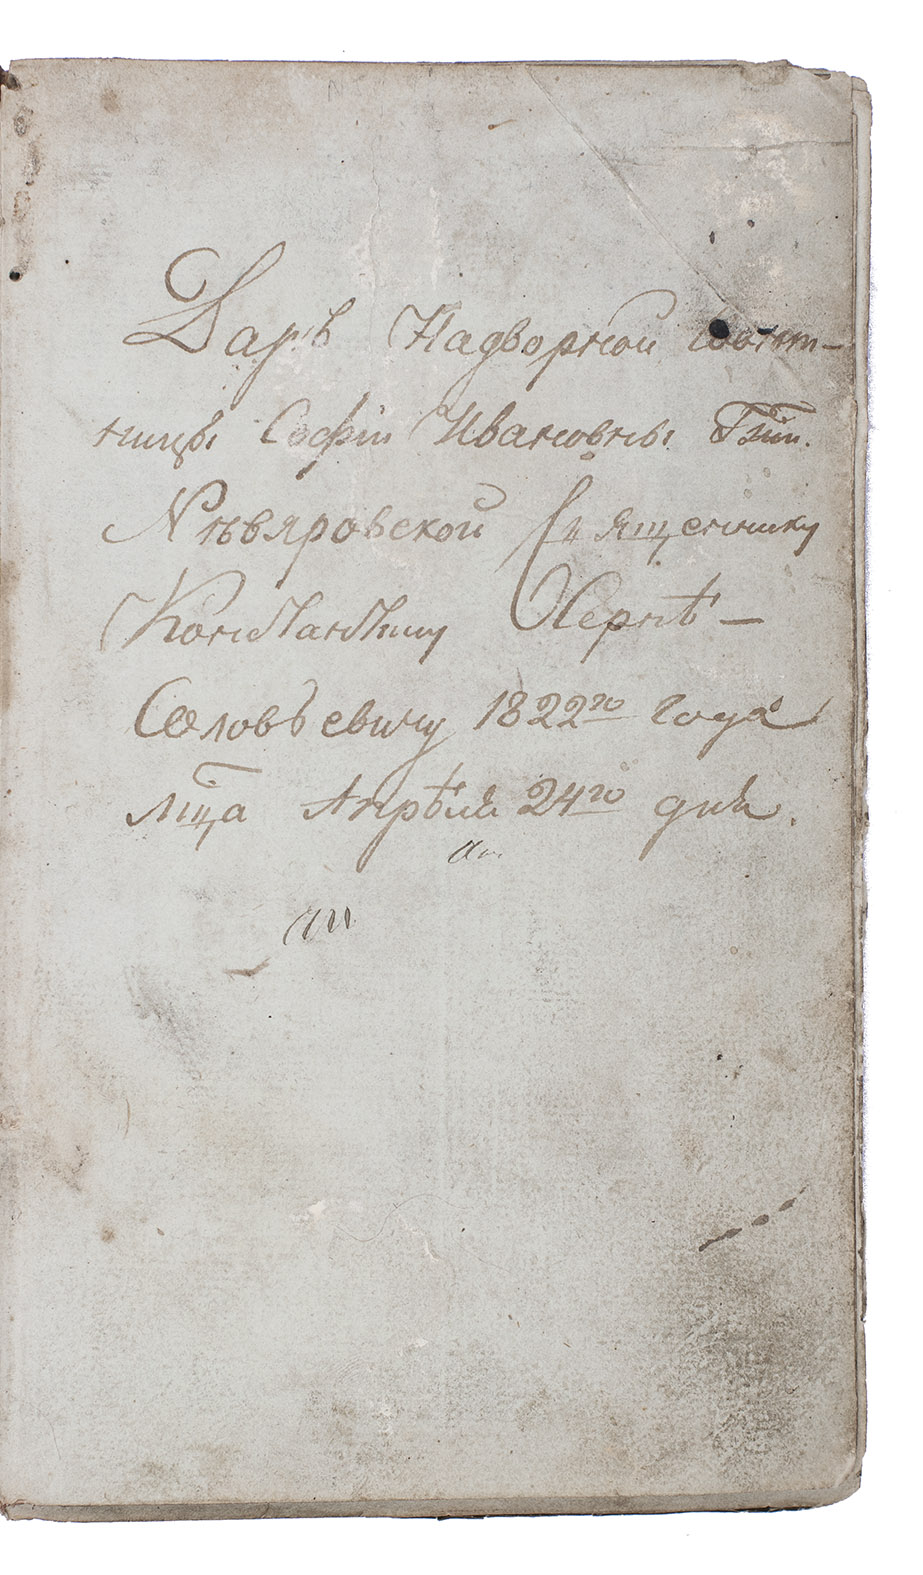 Даръ Надворной Совѣт-
ницы Софіи Ивановны Гжи
Священнику
Константину Черне-
Соловьевичу 1822го года
мца Апрѣля 24го дня.